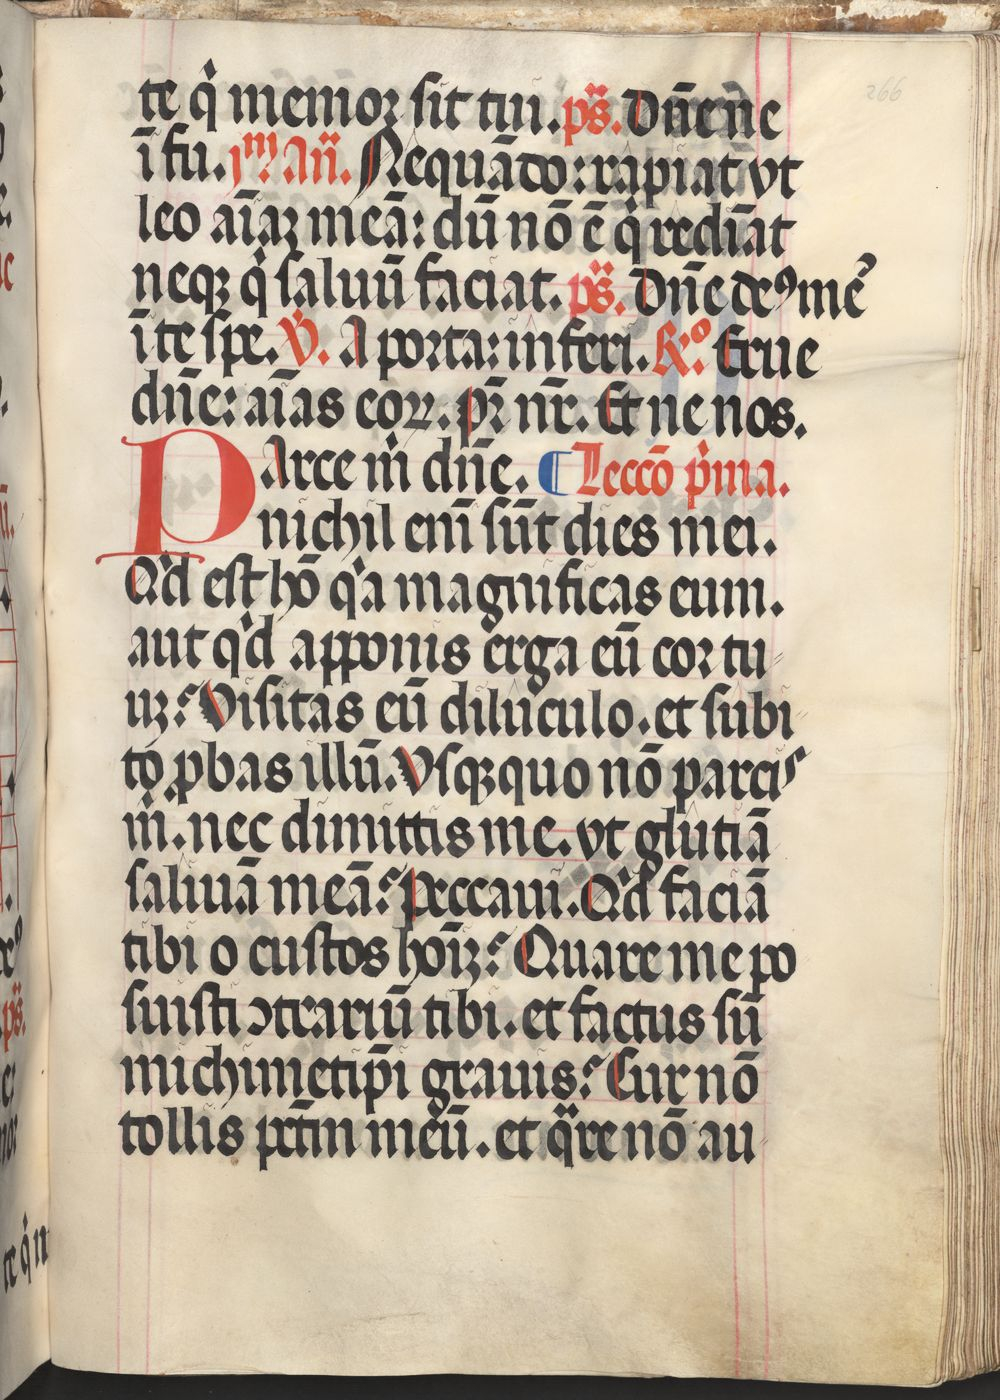 266
te q̇ memoꝛ sit tui. ps̄. Dn̄e ne
ī fu. Jᵐ? An̄. Nequādo: rapiat vt
leo aīaꝫ meā: dū nō ē q̇ rediāt
neqꝫ q̇ saluū faciat. ps̄. Dn̄e deꝰ mē
ī te spe. V̇. A poꝛta: inferi. R͛º Erue
dn̄e: aīas eoꝝ. pr̄ nr̄. Et ne nos.
PArce m̄i dn̄e. ¶ Lecco̅ p̓ma.
nichil enī sūt dies mei.
Qͥd est hō qͥa magnificas eum.
aut qͥd apponis erga eū coꝛ tu
uꝫ? Visitas eū diluculo. et subi
to ꝓbas illū. Vsqꝫquo nō parcis
m̄i. nec dimittis me. vt glutiā
saliuā meā? Peccaui. Qͥd faciā
tibi o custos hoīꝫ? Quare me po
suisti ↄtrariū tibi. et factus sū
michimetip̄i grauis? Cur nō
tollis pctm̄ meū. et q̄re nō au
te q̇ m